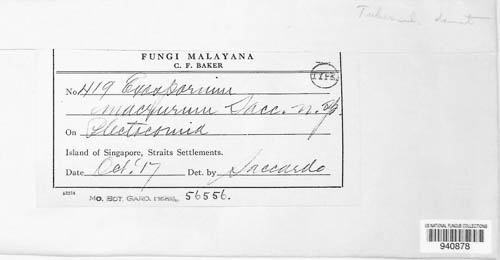 Tubercul. demat
FUNGI MALAYANA
C. F. BAKER
TYPE
No. 419 Exosporium
macrurum Sacc. n. sp.
On Plectocomia
Island of Singapore, Straits Settlements.
Date Oct. '17 Det. by Saccardo
MO. BOT. GARD. HERB. 56556.
US NATIONAL FUNGUS COLLECTIONS
940878